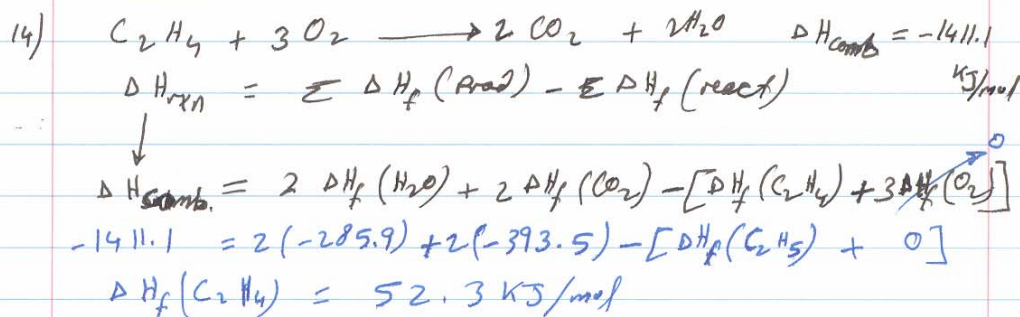 14) C2H4 + 3O2 → 2 CO2 + 2H2O ΔHcomb = -1411.1 KJ/mol
ΔHrxn = Σ ΔHf (Prod) - Σ ΔHf (react)
↓ 0
ΔHcomb. = 2 ΔHf (H2O) + 2 ΔHf (CO2) - [ΔHf (C2H4) + 3ΔHf (O2)]
-1411.1 = 2(-285.9) + 2(-393.5) - [ΔHf (C2H5) + 0]
ΔHf (C2H4) = 52.3 KJ/mol